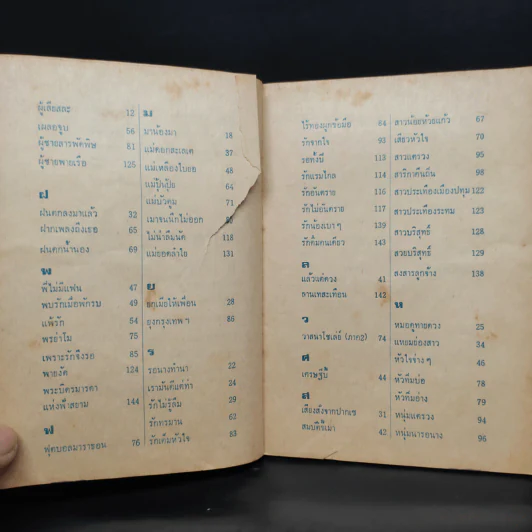 ผู้เสียสละ 12
เผลอจูบ 56
ผู้ชายสารพัดพิษ 81
ผู้ชายพายเรือ 125
ฝ
ฝนตกลงมาแล้ว 32
ฝากเพลงถึงเธอ 65
ฝนตกน้ำนอง 69
พ
พี่ไม่มีแฟน 47
พบรักเมื่อพักรบ 49
แพ้รัก 54
พรอำโม 75
เพราะรักจึงรอ 85
พายงัด 124
พระบิดรมารดา
แห่งฟ้าสยาม 144
ฟ
ฟุตบอลมาราธอน 76
ม
มาน้องมา 18
แม่ดอกสะเลเต 37
แม่เหลืองใบยอ 48
แม่ปุ๋มปุ้ย 64
แม่บัวตูม 71
เมาจนนึกไม่ออก
ไม่น่าลืมนัด 118
แม่ยอดลำใย 131
ย
ยกเมือให้เพื่อน 28
ยุงกรุงเทพฯ 86
ร
รอนางทำนา 22
เรามันคีแต่ท่า 24
รักไม่รู้ลืม 29
รักทรมาน 62
รักเต็มหัวใจ 83
ไร่ทองผูกข้อมือ 84
รักจากใจ 93
รอทั้งปี 113
รักแรมไกล 114
รักอันตราย 116
รักไม่อันตราย 117
รักน้องเบาๆ 139
รักคืนคนเดียว 143
ล
แล้วแต่ดวง 41
ลานเทสะเทือน 142
ว
วาสนาไซเล่ย์ (ภาค2) 74
ศ
เศรษฐีปี้ 44
ส
เสียงสั่งจากปากเซ 31
สมบัติขี้เมา 42
สาวน้อยห้วยแก้ว 67
เสียวหัวใจ 70
สาวแตรวง 95
สาริกาคืนถิ่น 94
สาวประเทืองเมืองปตุม 122
สาวประเทืองระทม 123
สาวบริสุทธิ์ 128
สวยบริสุทธิ์ 129
สงสารลูกจ้าง 138
ห
หมอดูทายดวง 25
แหยมย่องสาว 34
หัวใจว่างๆ 46
หัวคืมบ่อ 78
หัวคืมอ่าง 79
หนุ่มแตรวง 94
หนุ่มนารอนาง 96